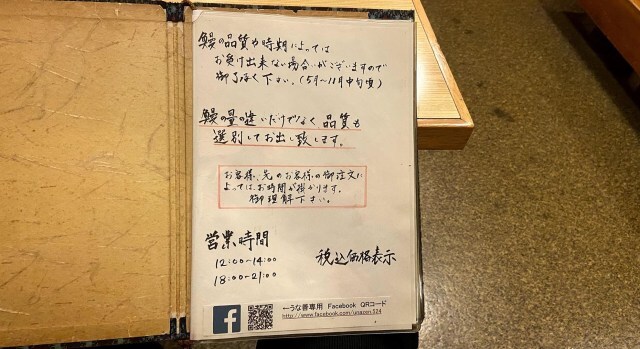 鰻の品質や時期によっては
お受け出来ない場合がございますので
御了承下さい。(5月〜11月中旬頃)
鰻の量の違いだけでなく品質も
選別してお出し致します。
お客様、先のお客様の御注文に
よっては、お時間が掛かります。
御理解下さい。
営業時間
12:00-14:00
18:00-21:00
税込価格表示
←うな善専用 Facebook QRコード
http://www.facebook.com/unazen.524